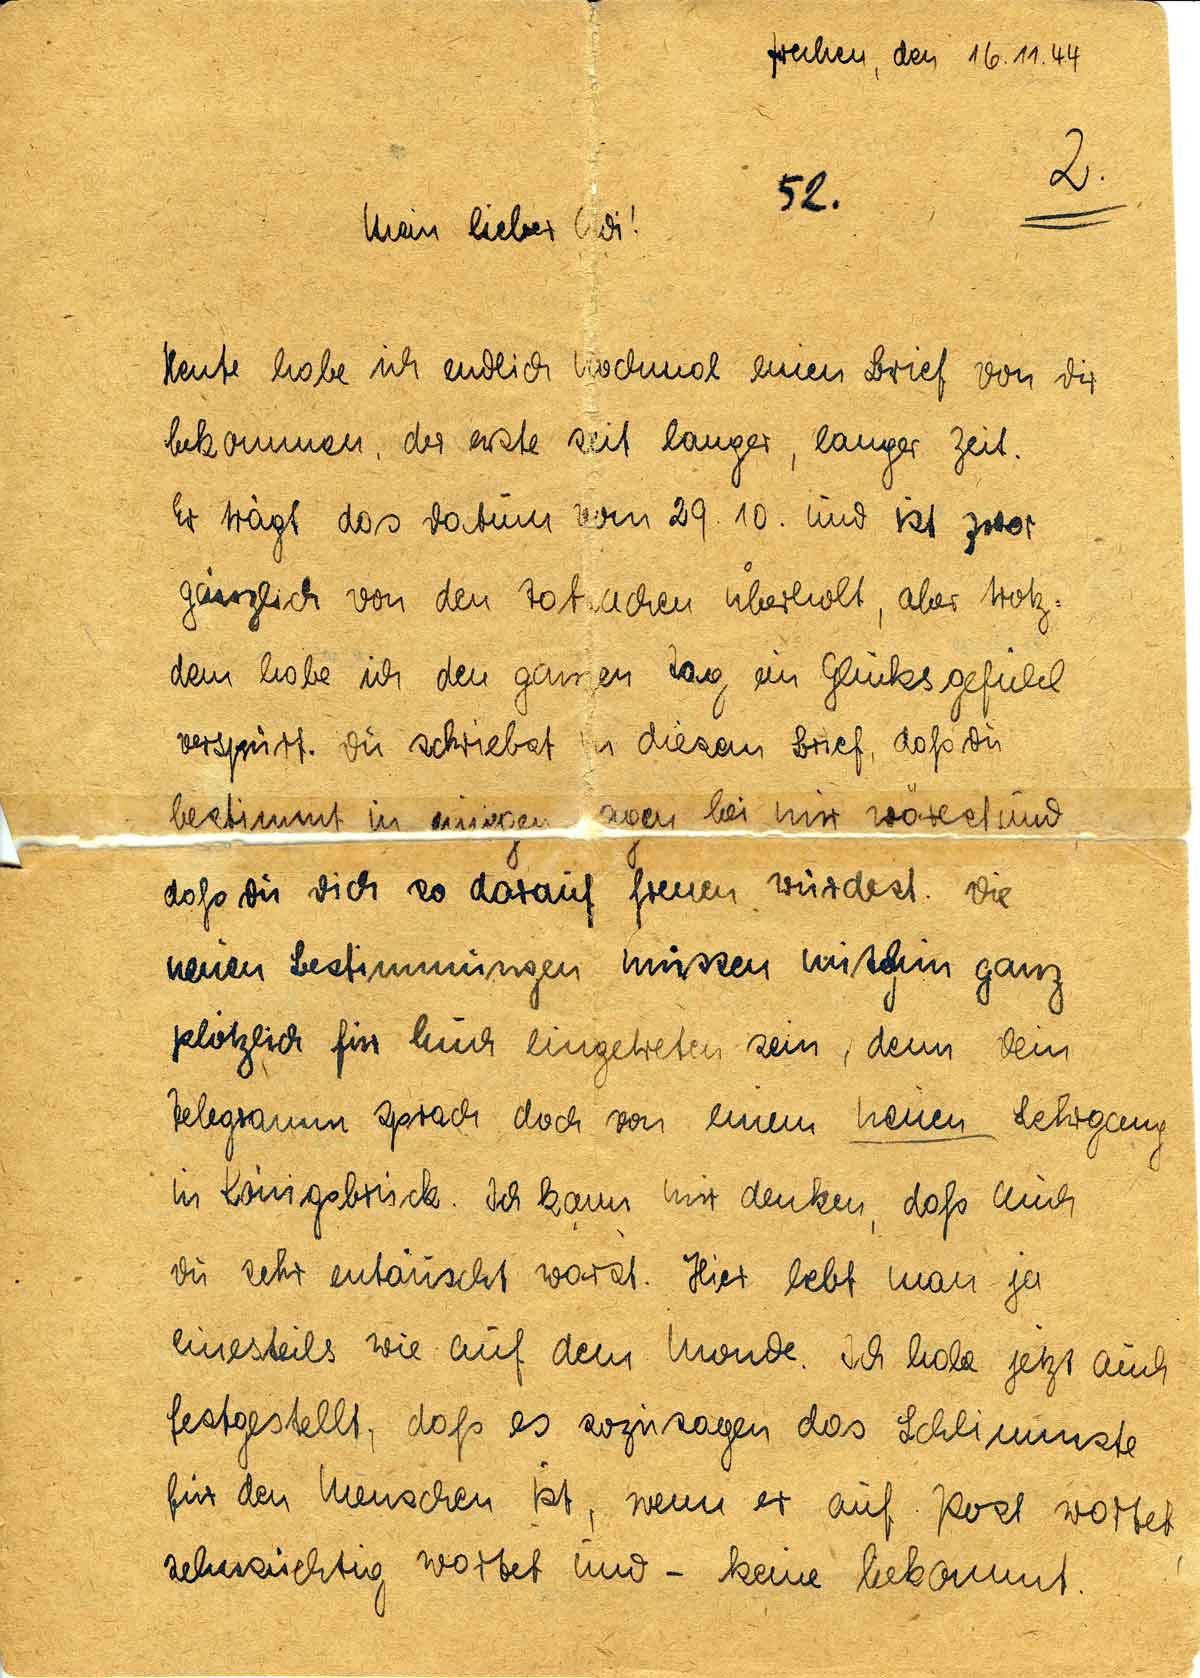 Frechen, den 16.11.44
2.
52.
Mein lieber Adi!
Heute habe ich endlich nochmal einen Brief von dir
bekommen, der erste seit langer, langer Zeit.
Er trägt das Datum vom 29. 10. und ist zwar
gänzlich von den Tatsachen überholt, aber trotz=
dem habe ich den ganzen Tag ein Glücksgefühl
verspürt. Du schriebst in diesem Brief, daß du
bestimmt in einigen Tagen bei mir wärest und
daß du dich so darauf freuen würdest. Die
neuen Bestimmungen müssen mithin ganz
plötzlich für Euch eingetreten sein, denn dein
Telegramm sprach doch von einem neuen Lehrgang
in Königsbrück. Ich kann mir denken, daß auch
du sehr entäuscht warst. Hier lebt man ja
einesteils wie auf dem Monde. Ich habe jetzt auch
festgestellt, daß es sozusagen das Schlimmste
für den Menschen ist, wenn er auf Post wartet,
sehnsüchtig wartet und - keine bekommt.